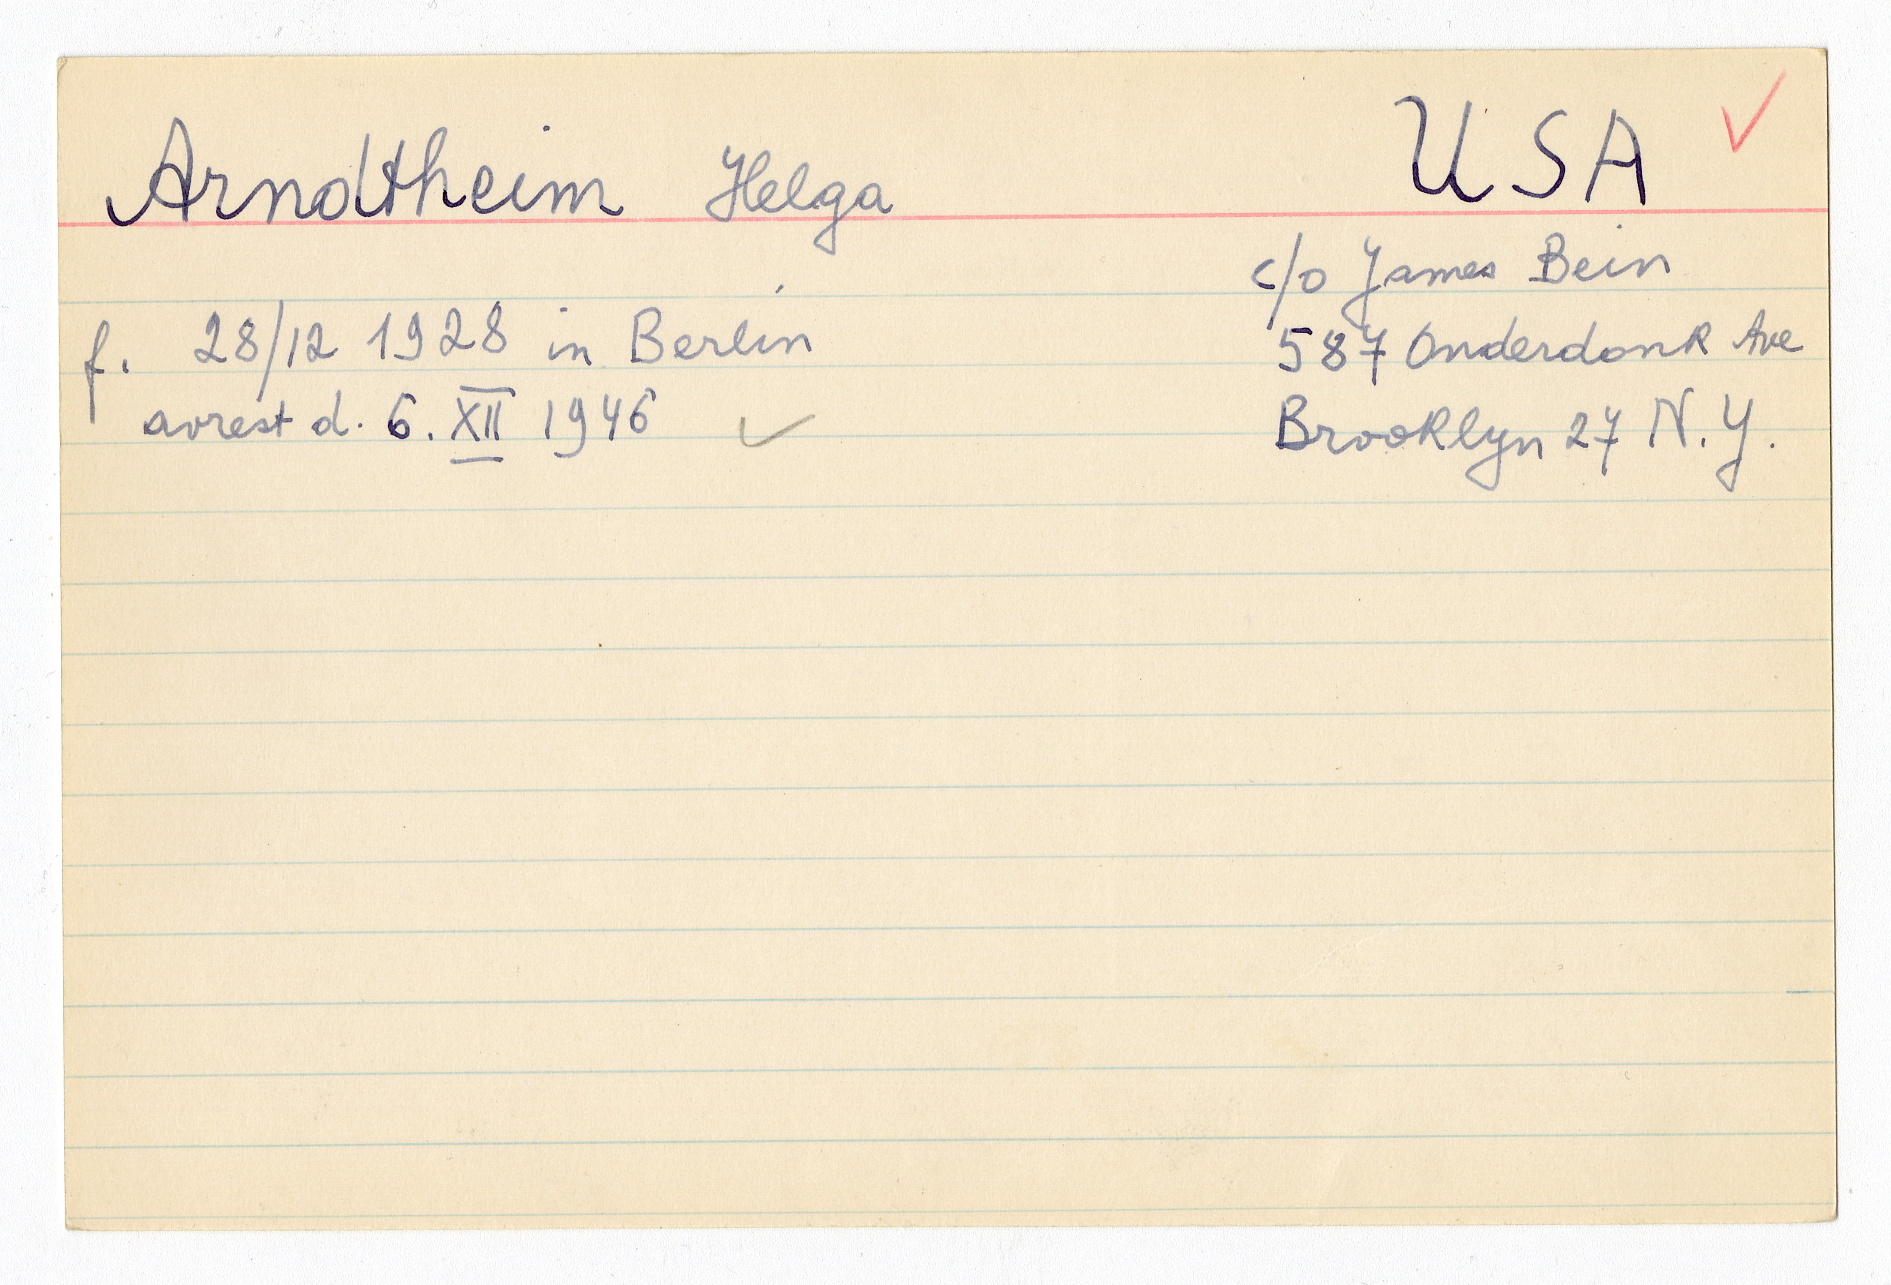 Arndtheim Helga
USA
c/o James Bein
587 Onderdonk Ave
Brooklyn 27 N.Y.
f. 28/12 1928 in Berlin
avrest d. 6. XII 1946